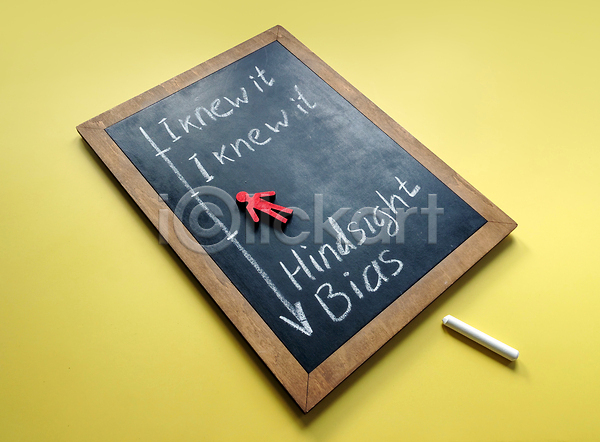 I knew it
I knew it
Hindsight
Bias
iclickart